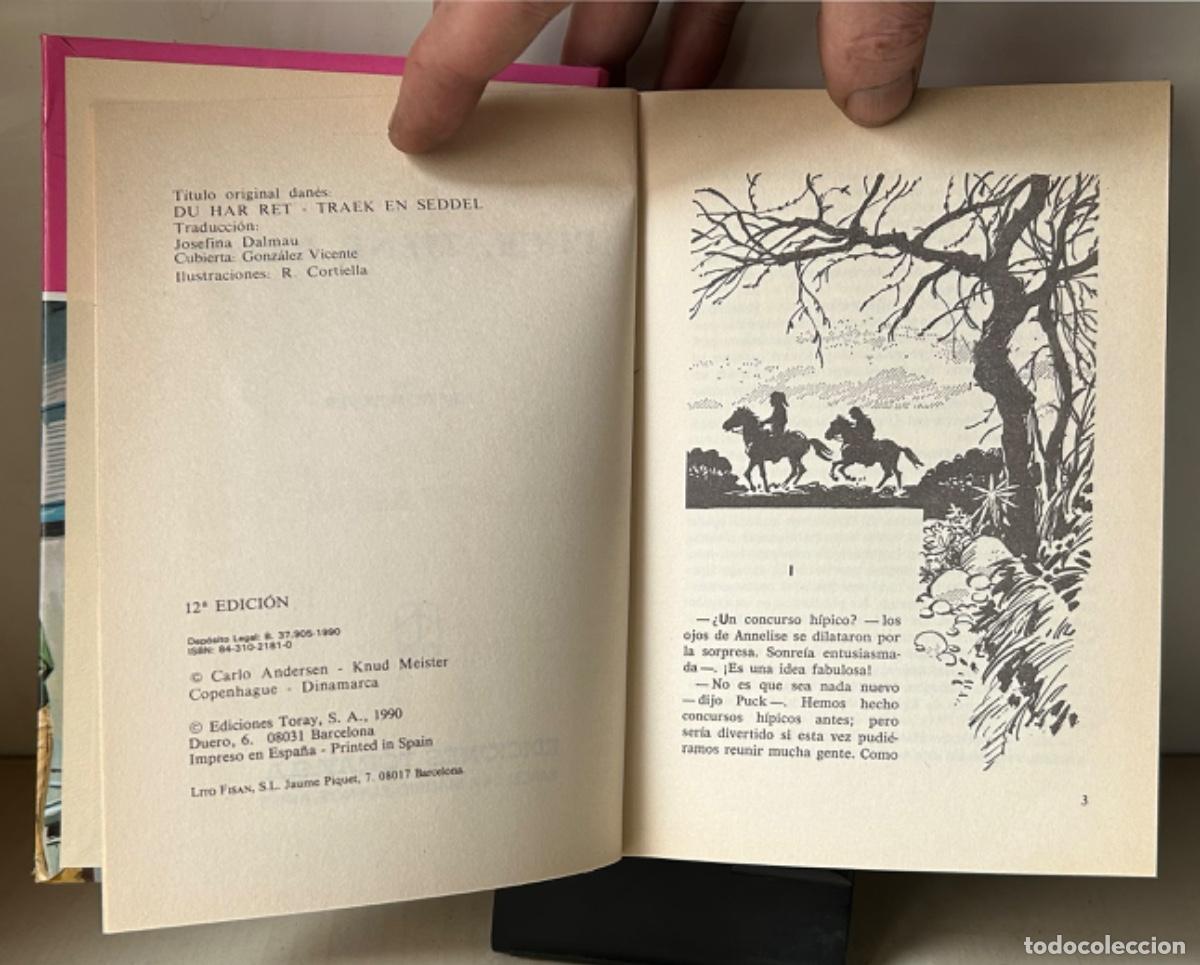 Título original danés:
DU HAR RET - TRAEK EN SEDDEL
Traducción:
Josefina Dalmau
Cubierta: González Vicente
Ilustraciones: R. Cortiella
12ª EDICIÓN
Depósito Legal: B. 37.905-1990
ISBN: 84-310-2181-0
© Carlo Andersen - Knud Meister
Copenhague - Dinamarca
© Ediciones Toray, S. A., 1990
Duero, 6. 08031 Barcelona
Impreso en España - Printed in Spain
LITO FISAN, S.L. Jaume Piquet, 7. 08017 Barcelona
I
—¿Un concurso hípico? —los
ojos de Annelise se dilataron por
la sorpresa. Sonreía entusiasma-
da—. ¡Es una idea fabulosa!
—No es que sea nada nuevo
—dijo Puck—. Hemos hecho
concursos hípicos antes; pero
sería divertido si esta vez pudié-
ramos reunir mucha gente. Como
3
todocoleccion